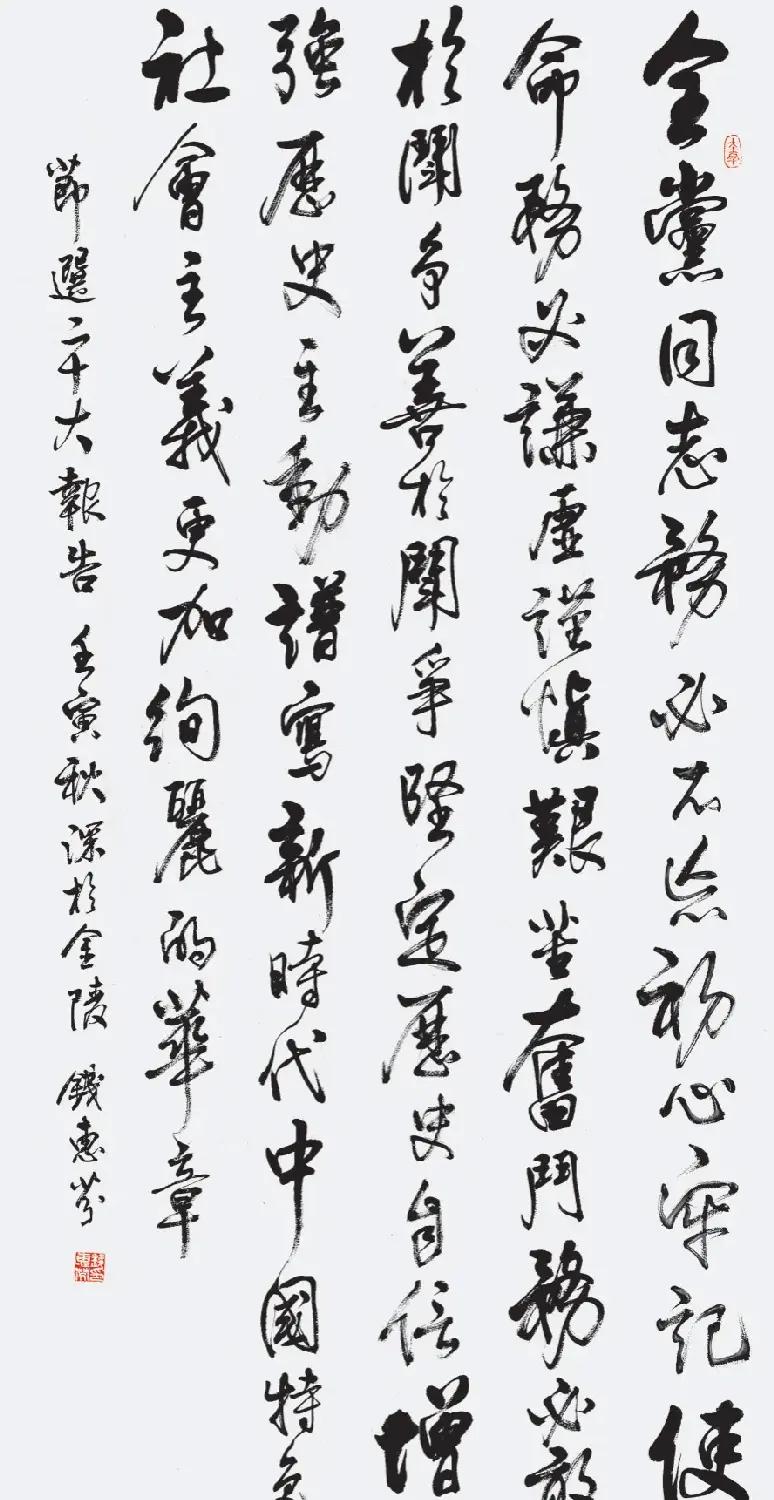 全黨同志務必不忘初心牢記使
命務必謙虛謹慎艱苦奮鬥務必敢
於鬪爭善於鬪爭堅定歷史自信增
強歷史主動譜寫新時代中國特色
社會主義更加絢麗的華章
節選二十大報告 壬寅秋深於金陵 錢惠芬